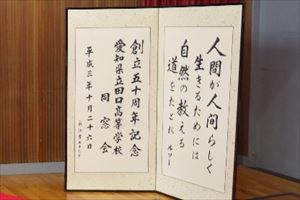 人間が人間らしく
生きるためには
自然の教える
道をたどれ ルソー
創立五十周年記念
愛知県立田口高等学校
同窓会
平成三年十月二十六日